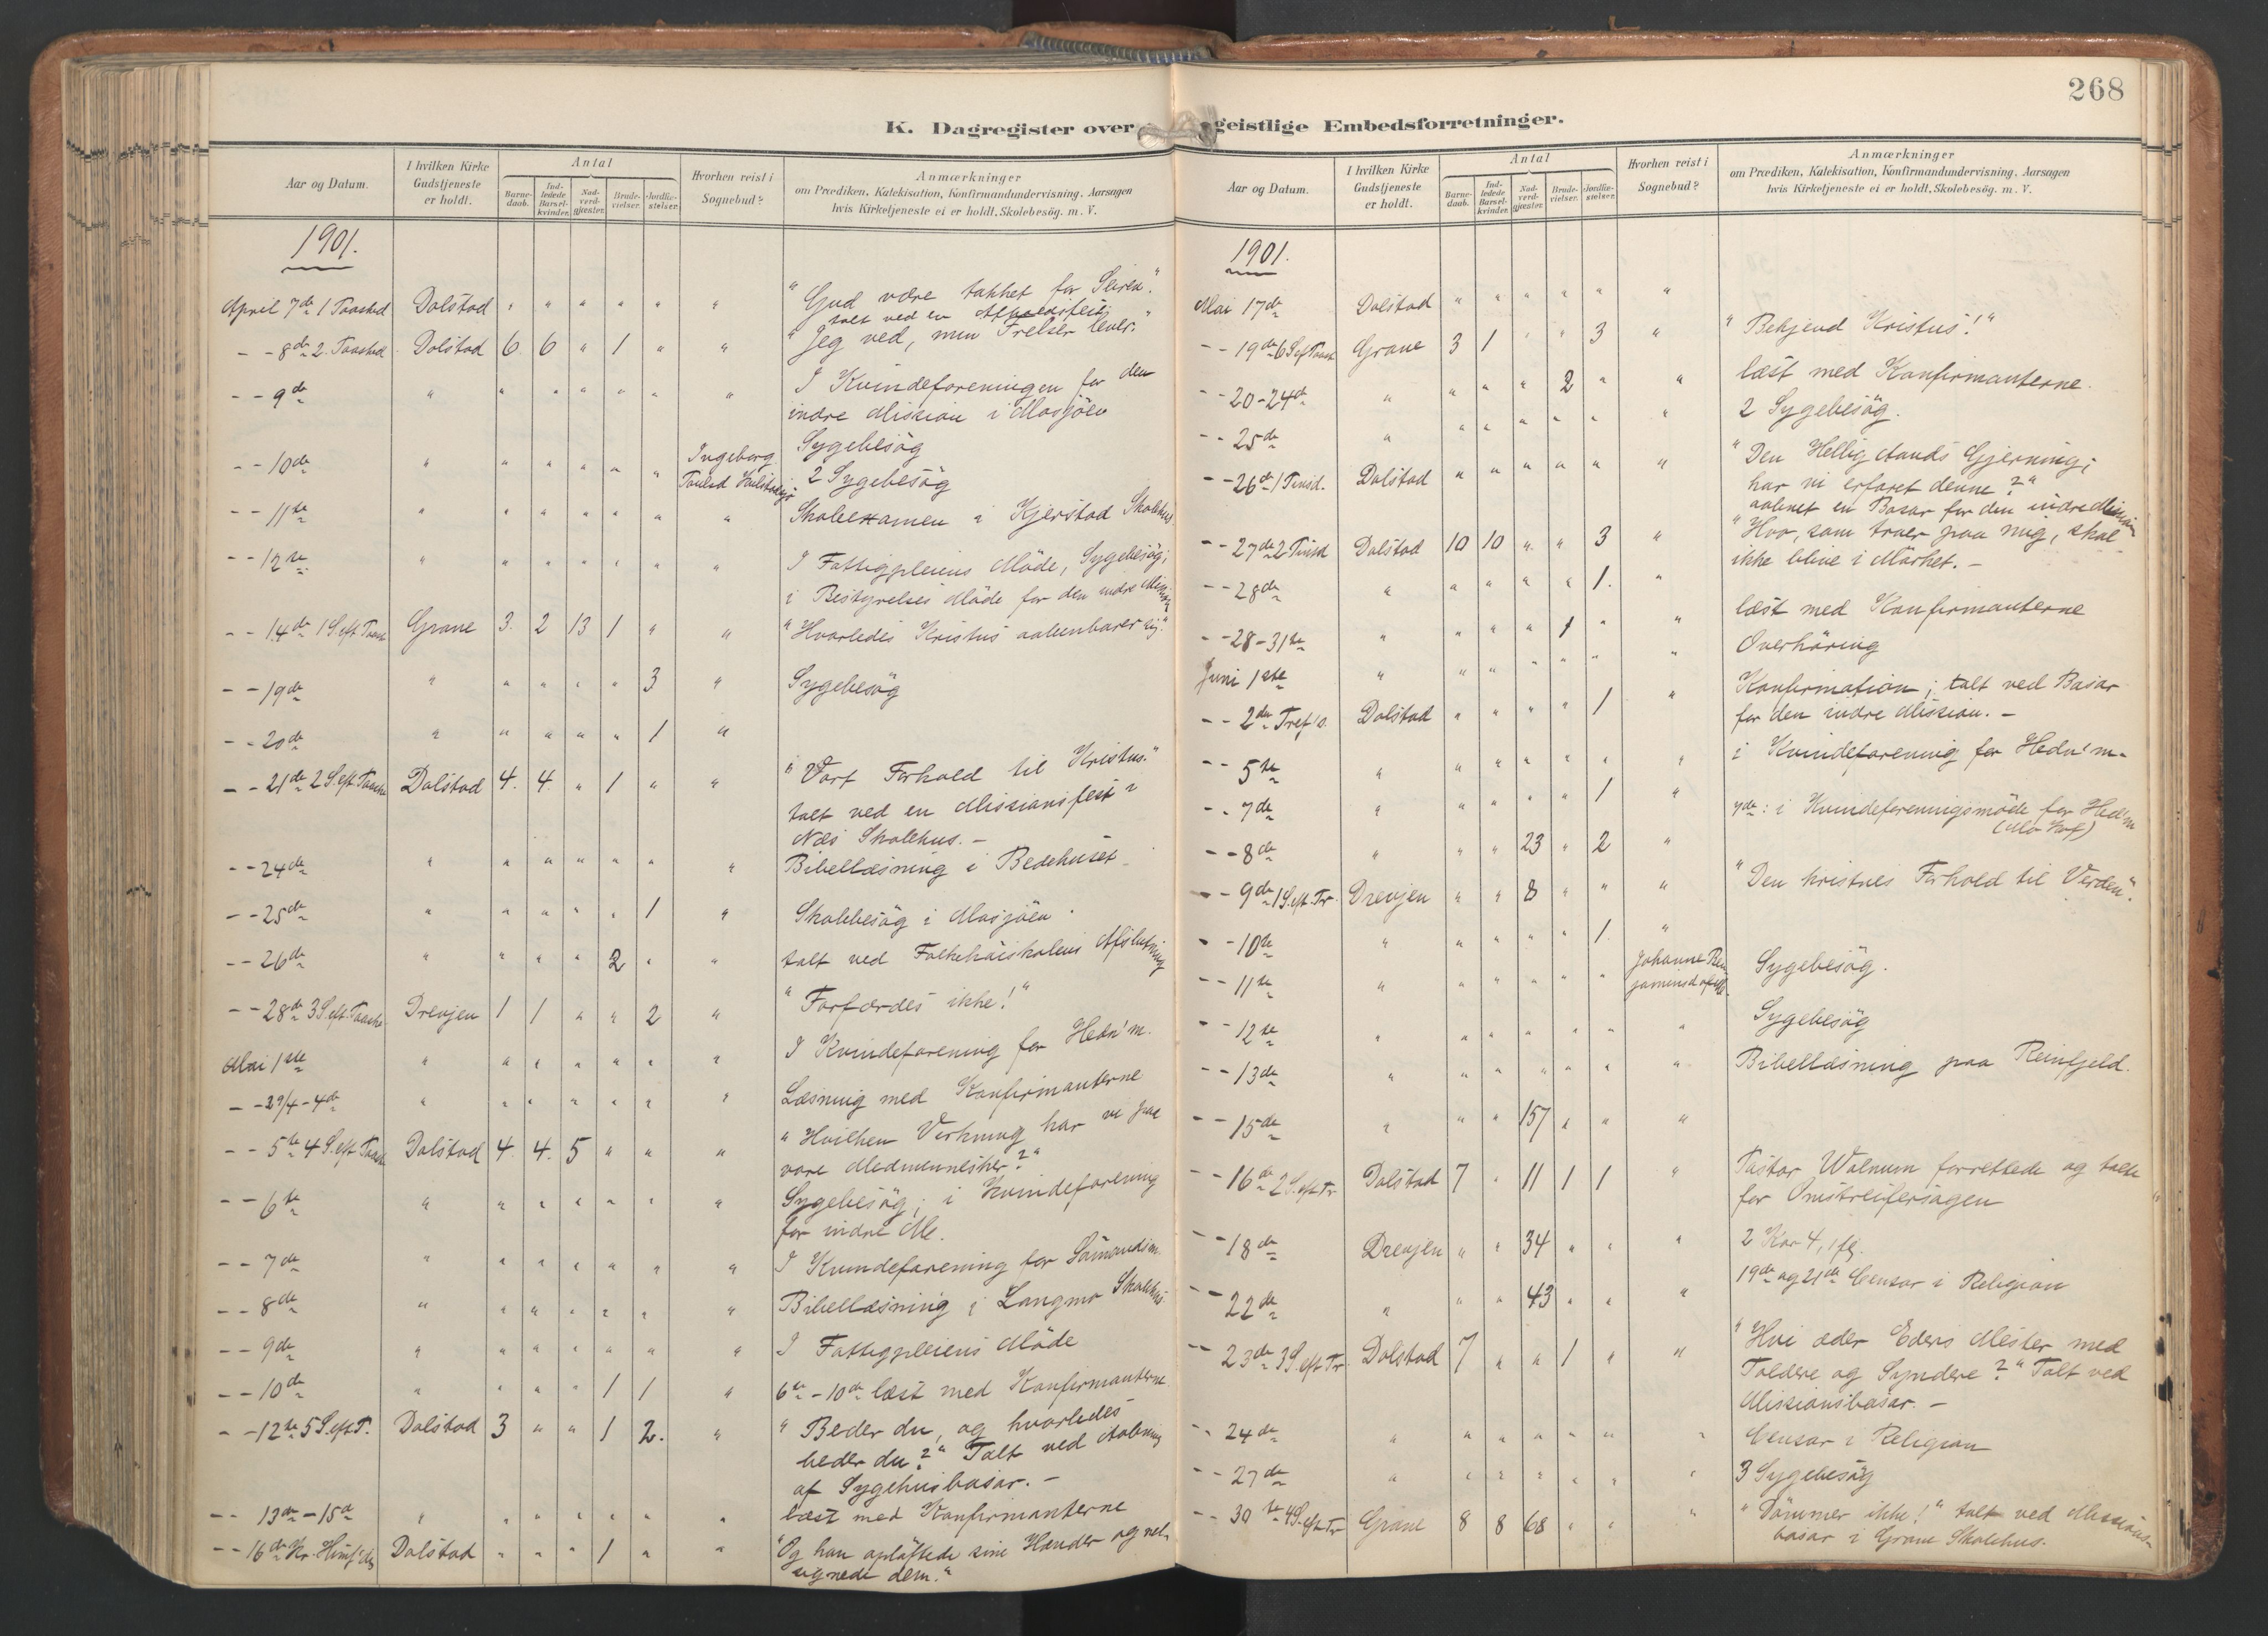 268
K. Dagregister over geistlige Embedsforretninger.
Aar og Datum.
I hvilken Kirke Gudstjeneste er holdt.
Antal
Barnedaab.
Indledede Barselkvinder.
Nadverdgjæster.
Brudevielser.
Jordfæstelser.
Hvorhen reist i Sognebud?
Anmærkninger
om Prædiken, Katekisation, Konfirmandundervisning, Aarsagen
hvis Kirketjeneste ei er holdt, Skolebesög. m. V.
1901.
April 7de 1 Paasked Dolstad " " " " " " "Gud være takket for Seiren."
talt ved en
- - 8de 2. Paasked. Dolstad 6 6 " 1 " " "Jeg ved, min Frelser lever."
- - 9de " " " " " " " I Kvindeforeningen for den
indre Mission i Mosjöen
- - 10de " " " " " " Ingeborg Sygebesög
2 Sygebesög
- - 11te " " " " " " " Skoleexamen i Kjerstad Skolehus
- - 12te " " " " " " " I Fattigpleiens Möde, Sygebesög;
i Bestyrelses Möde for den indre Mission
- - 14de 1 S. eft Paask Grane 3. 2 13 1 " " "Hvorledes Kristus aabenbarer sig."
- - 19de " " " " " 3 " Sygebesög
- - 20de " " " " " 1 "
- - 21de 2 S. eft. Paaske Dolstad 4. 4. " 1 " " "Vort Forhold til Kristus."
talt ved en Missionsfest i
Næs Skolehus. -
- - 24de " " " " " " " Bibellæsning i Bedehuset
- - 25de " " " " " 1 " Skolebesög i Mosjöen.
- - 26de " " " " 2 " " talt ved Folkehöiskolens Afslutning
- - 28de 3 S. eft. Paaske Drevjen 1 1 " " 2 " "Forfærdes ikke!"
Mai 1ste " " " " " " " I Kvindeforening for Hedn'm.
- - 29/4 - 4de " " " " " " " Læsning med Konfirmanterne
- - 5te 4 S. eft Paask Dolstad 4. 4. 5 " " " "Hvilken Virkning har vi paa
vore Medmennesker?"
- - 6te " " " " " " " Sygebesög; i Kvindeforening
for indre M.
- - 7de " " " " " " " I Kvindeforening for Sömandsm.
- - 8de " " " " " " " Bibellæsning i Langmo Skolehus
- - 9de " " " " " " " I Fattigpleiens Möde
- - 10de " " " " 1 1 " 6te - 10de læst med Konfirmanterne.
- - 12te 5 S. eft P. Dolstad 3 " " 1 2. " "Beder du, og hvorledes
beder du?" Talt ved Aabning
af Sygehusbasar. -
- - 13de - 15de " " " " " " " læst med Konfirmanterne
- - 16de Kr. Himf'dg Dolstad " " " 1 " " "Og han oplöftede sine Hænder og vel-
signede dem."
Aar og Datum.
I hvilken Kirke Gudstjeneste er holdt.
Antal
Barnedaab.
Indledede Barselkvinder.
Nadverdgjæster.
Brudevielser.
Jordfæstelser.
Hvorhen reist i Sognebud?
Anmærkninger
om Prædiken, Katekisation, Konfirmandundervisning, Aarsagen
hvis Kirketjeneste ei er holdt, Skolebesög. m. V.
1901.
Mai 17de Dolstad " " " " " "
- - 19de 6 S. ef Paask Grane 3 1 " " 3 " "Bekjend Kristus!"
- - 20-24de " " " " 2 " " læst med Konfirmanterne.
- - 25de " " " " " " " 2 Sygebesög.
- - 26de 1 Pinsd. Dolstad " " " " " " "Den Hellig Aands Gjerning;
har vi erfaret denne?"
aabnet en Basar for den indre Mission
- - 27de 2 Pinsd Dolstad 10 10 " " 3 " "Hvo, som troer paa mig, skal
ikke blive i Mörket. -
- - 28de " " " " " 1. "
- - 28-31te " " " " 1 " " læst med Konfirmanterne
Juni 1ste " " " " " " " Overhöring
- - 2den Tref's. Dolstad " " " " 1 " Konfirmation; talt ved Basar
for den indre Mission. -
- - 5te " " " " " " " i Kvindeforening for Hedn'm.
- - 7de " " " " " 1 " 7de: i Kvindeforeningsmöde for Hedn'm
- - 8de " " " 23 " 2 "
- - 9de 1 S. eft. Tr. Drevjen " " 8 " " " "Den kristnes Forhold til Verden."
- - 10de " " " " " 1. "
- - 11te " " " " " " Johanne Ben- Sygebesög.
- - 12te " " " " " " " Sygebesög
- - 13de " " " " " " " Bibellæsning paa Reinfjeld.
- - 15de " " " 157 " " "
- - 16de 2 S. eft Tr Dolstad 7 " 11 1 1 " Pastor Walnum forrettede og talte
for Omstreifersagen
- - 18de Drevjen " " 34 " " " 2 Kor 4, 1 fg.
19de og 21de Censor i Religion
- - 22de " " " 43 " " "
- - 23de 3 S. eft Tr. Dolstad 7 " " 1 " " "Hvi æder Eders Mester med
Toldere og Syndere?" Talt ved
Missionsbasar. -
- - 24de " " " " " " " Censor i Religion
- - 27de " " " " " " " 3 Sygebesög
- - 30te 4 S. eft Tr Grane 8 8 68 " " " "Dömmer ikke!" talt ved Missions-
basar i Grane Skolehus.